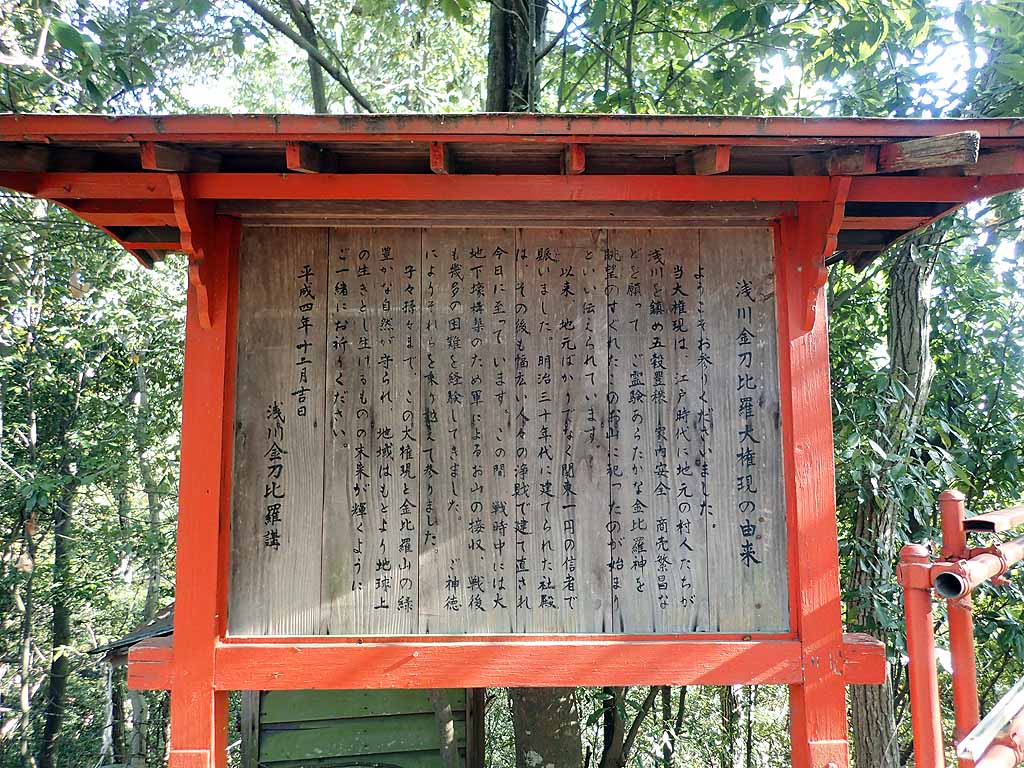 浅川金刀比羅大権現の由来
ようこそお参りくださいました。
当大権現は、江戸時代に地元の村人たちが
浅川を鎮め五穀豊穣 家内安全 商売繁昌な
どを願って ご霊験あらたかな金比羅神を
眺望のすぐれたこのお山に祀ったのが始まり
といい伝えられています。
以来 地元ばかりでなく関東一円の信者で
賑いました。明治三十年代に建てられた社殿
は、その後も幅広い人々の浄財で建て直され
今日に至っています。この間 戦時中には大
地下壕構築のため軍によるお山の接収 戦後
も幾多の困難を経験してきました。 ご神徳
によりそれらを乗り越えて参りました。
子々孫々まで、この大権現と金比羅山の緑
豊かな自然が守られ、地域はもとより地球上
の生きとし生けるものの未来が輝くように
ご一緒にお祈りください。
平成四年十二月吉日
浅川金刀比羅講